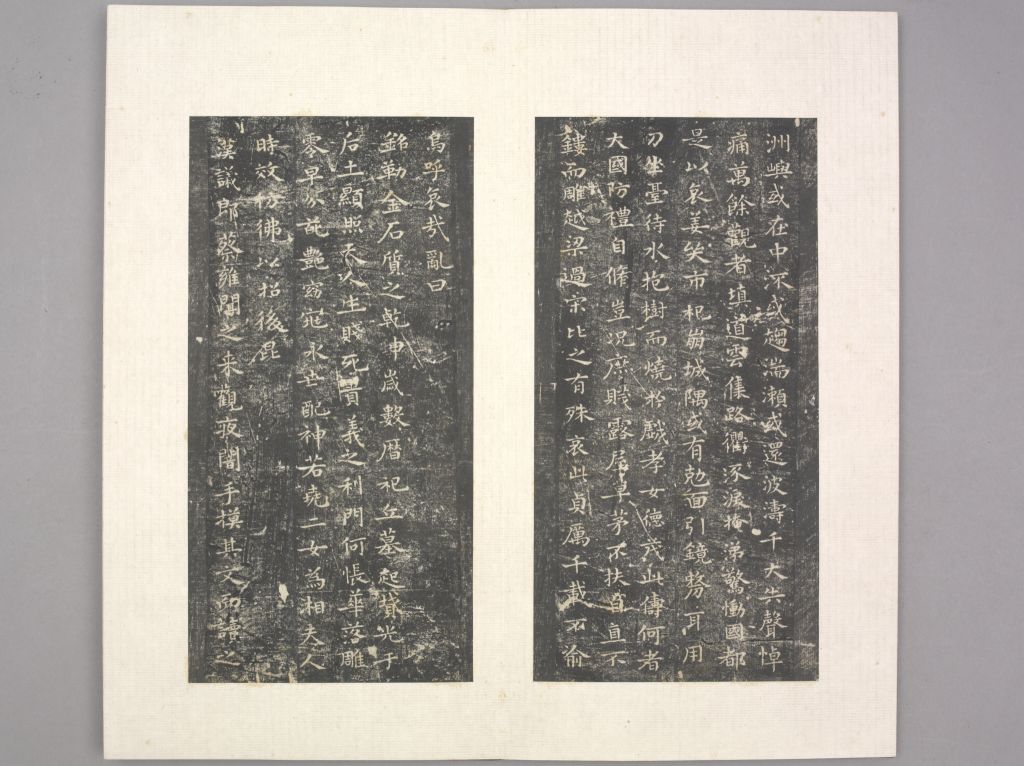 洲嶼或在中流或趨湍瀨或還波濤千夫失聲悼
痛萬餘觀者填道雲集路衢泳淚掩涕驚慟國都
是以哀姜哭市杞崩城隅或有尅面引鏡剺耳用
刀坐臺待水抱樹而燒於戲孝女德茂此儔何者
大國防禮自脩豈況庶賤露屋草茅不扶自直不
鏤而雕越梁過宋比之有殊哀此貞厲千載不渝
嗚呼哀哉亂曰
銘勒金石質之乾坤歲數曆祀丘墓起墳光于
后土顯照天人生賤死貴義之利門何悵華落雕
零早分葩艷窈窕永世配神若堯二女為湘夫人
時效髣彿以招後昆
漢議郎蔡雍聞之来觀夜闇手摸其文而讀之